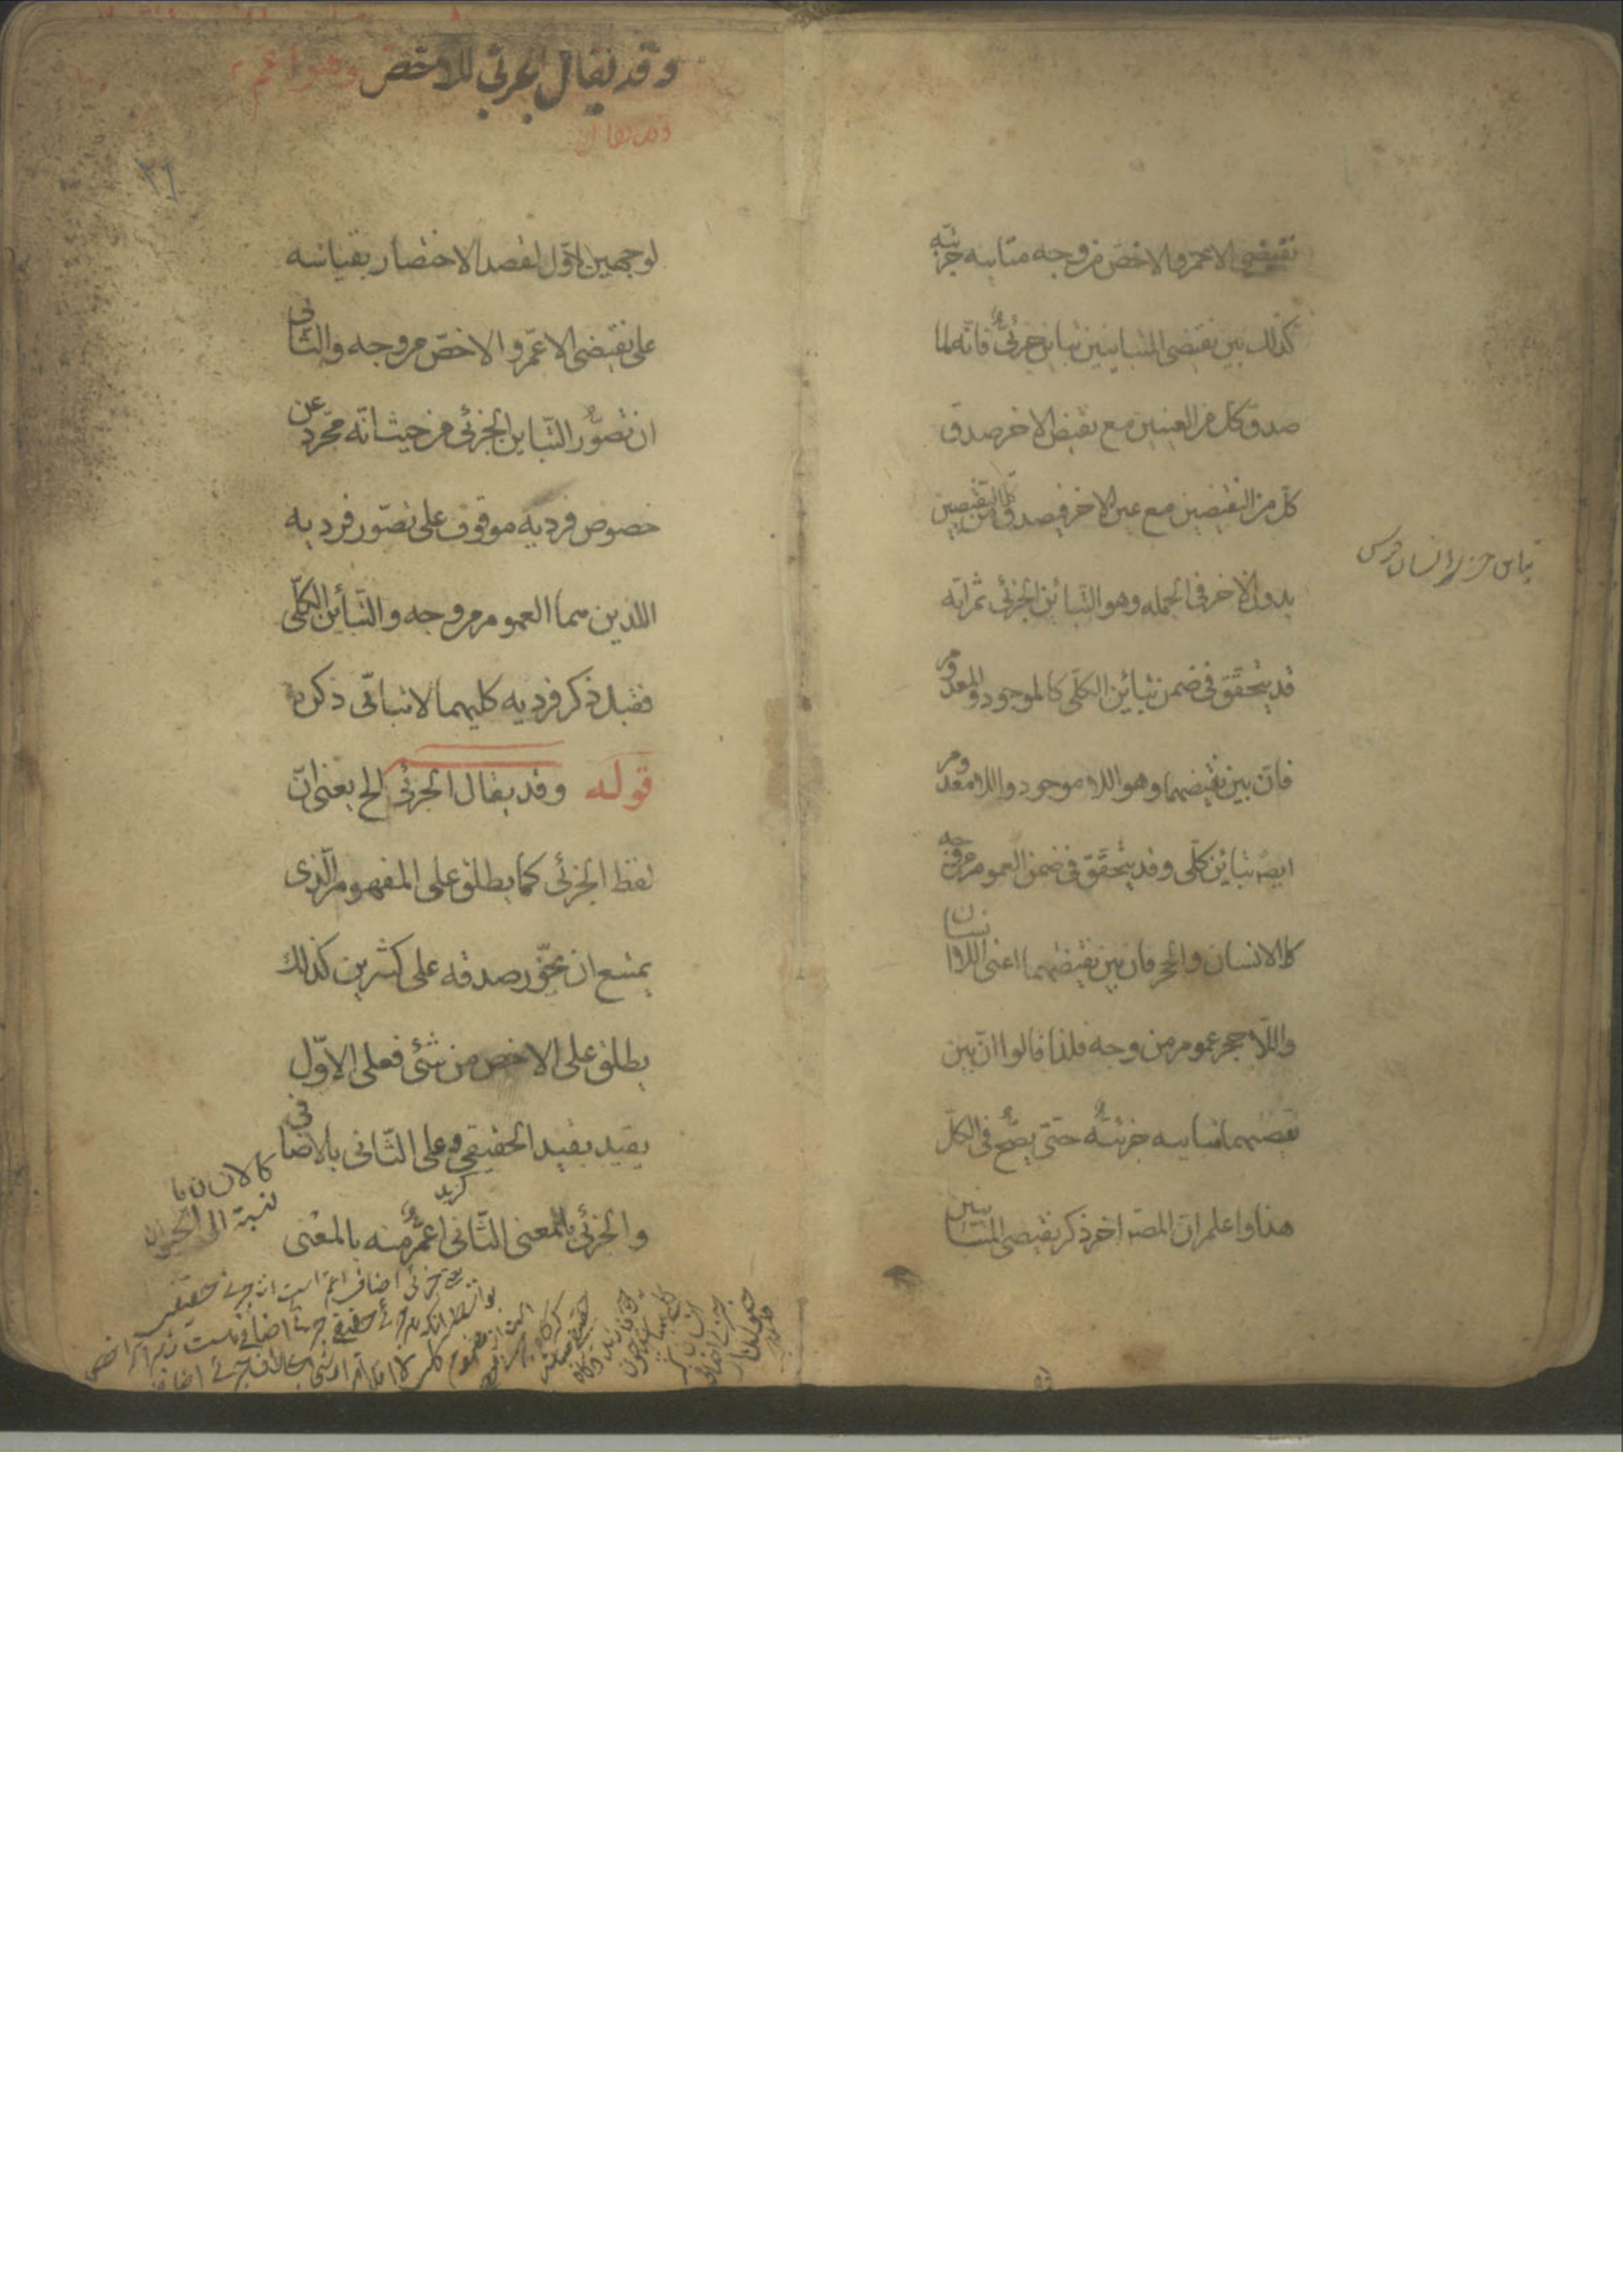 نقيضى الاعم والاخص من وجه مباينه جزئيّه
كذلك بين نقيضى المتباينين تباين جزئىٌّ فانّه لما
صدق كل من العينين مع نقيض الاخر صدق
كلّ من النقيضين مع عين الاخر فيصدق كلّ من النقيضين
بدون الاخر فى الجمله وهو التبائن الجزئى ثم انّه
قد يتحقّق فى ضمن تبائن الكلّى كالموجود والمعدوم
فانّ بين نقيضهما وهو اللا موجود واللا معدوم
ايضا تبائن كلّى وقد يتحقّق فى ضمن العموم من وجه
كالانسان والحجر فان بين نقيضهما اعنى اللا انسان
واللّا حجر عموم من وجه فلذا قالوا انّ بين
نقيضهما مباينه جزئيّةٌ حتى يصحّ فى الكلّ
هذا واعلم ان المصـ اخر ذكر نقيضى المتباينين
وقد يقال الجزئى للاخصّ وهو اعم
وقد يقال
٢٦
لوجهين الاوّل لقصد الاختصار بقياسه
على نقيضى الاعمّ و الاخصّ من وجه والثانى
ان تصوّر التّباين الجزئى من حيث انّه مجّرد عن
خصوص فرديه موقوف على تصّور فرديه
اللذين هما العموم من وجه والتّبائن الكلّى
فقبل ذكر فرديه كليهما لا يتاتّى ذكره
قوله وقد يقال الجزئى الخ يعنى انّ
لفظ الجزئى كما يطلق على المفهوم الّذى
يمتنع ان يجوّز صدقه على كثيرين كذلك
يطلق على الاخص من شئ فعلى الاوّل
يقيد بقيد الحقيقى وعلى الثّانى بالاضافى
والجزئى بالمعنى الثّانى اعمُّ منه بالمعنى
كالانسان با
لنسبة الى الحيوان
جزئى اضافى اعم است از جزئى حقيقى